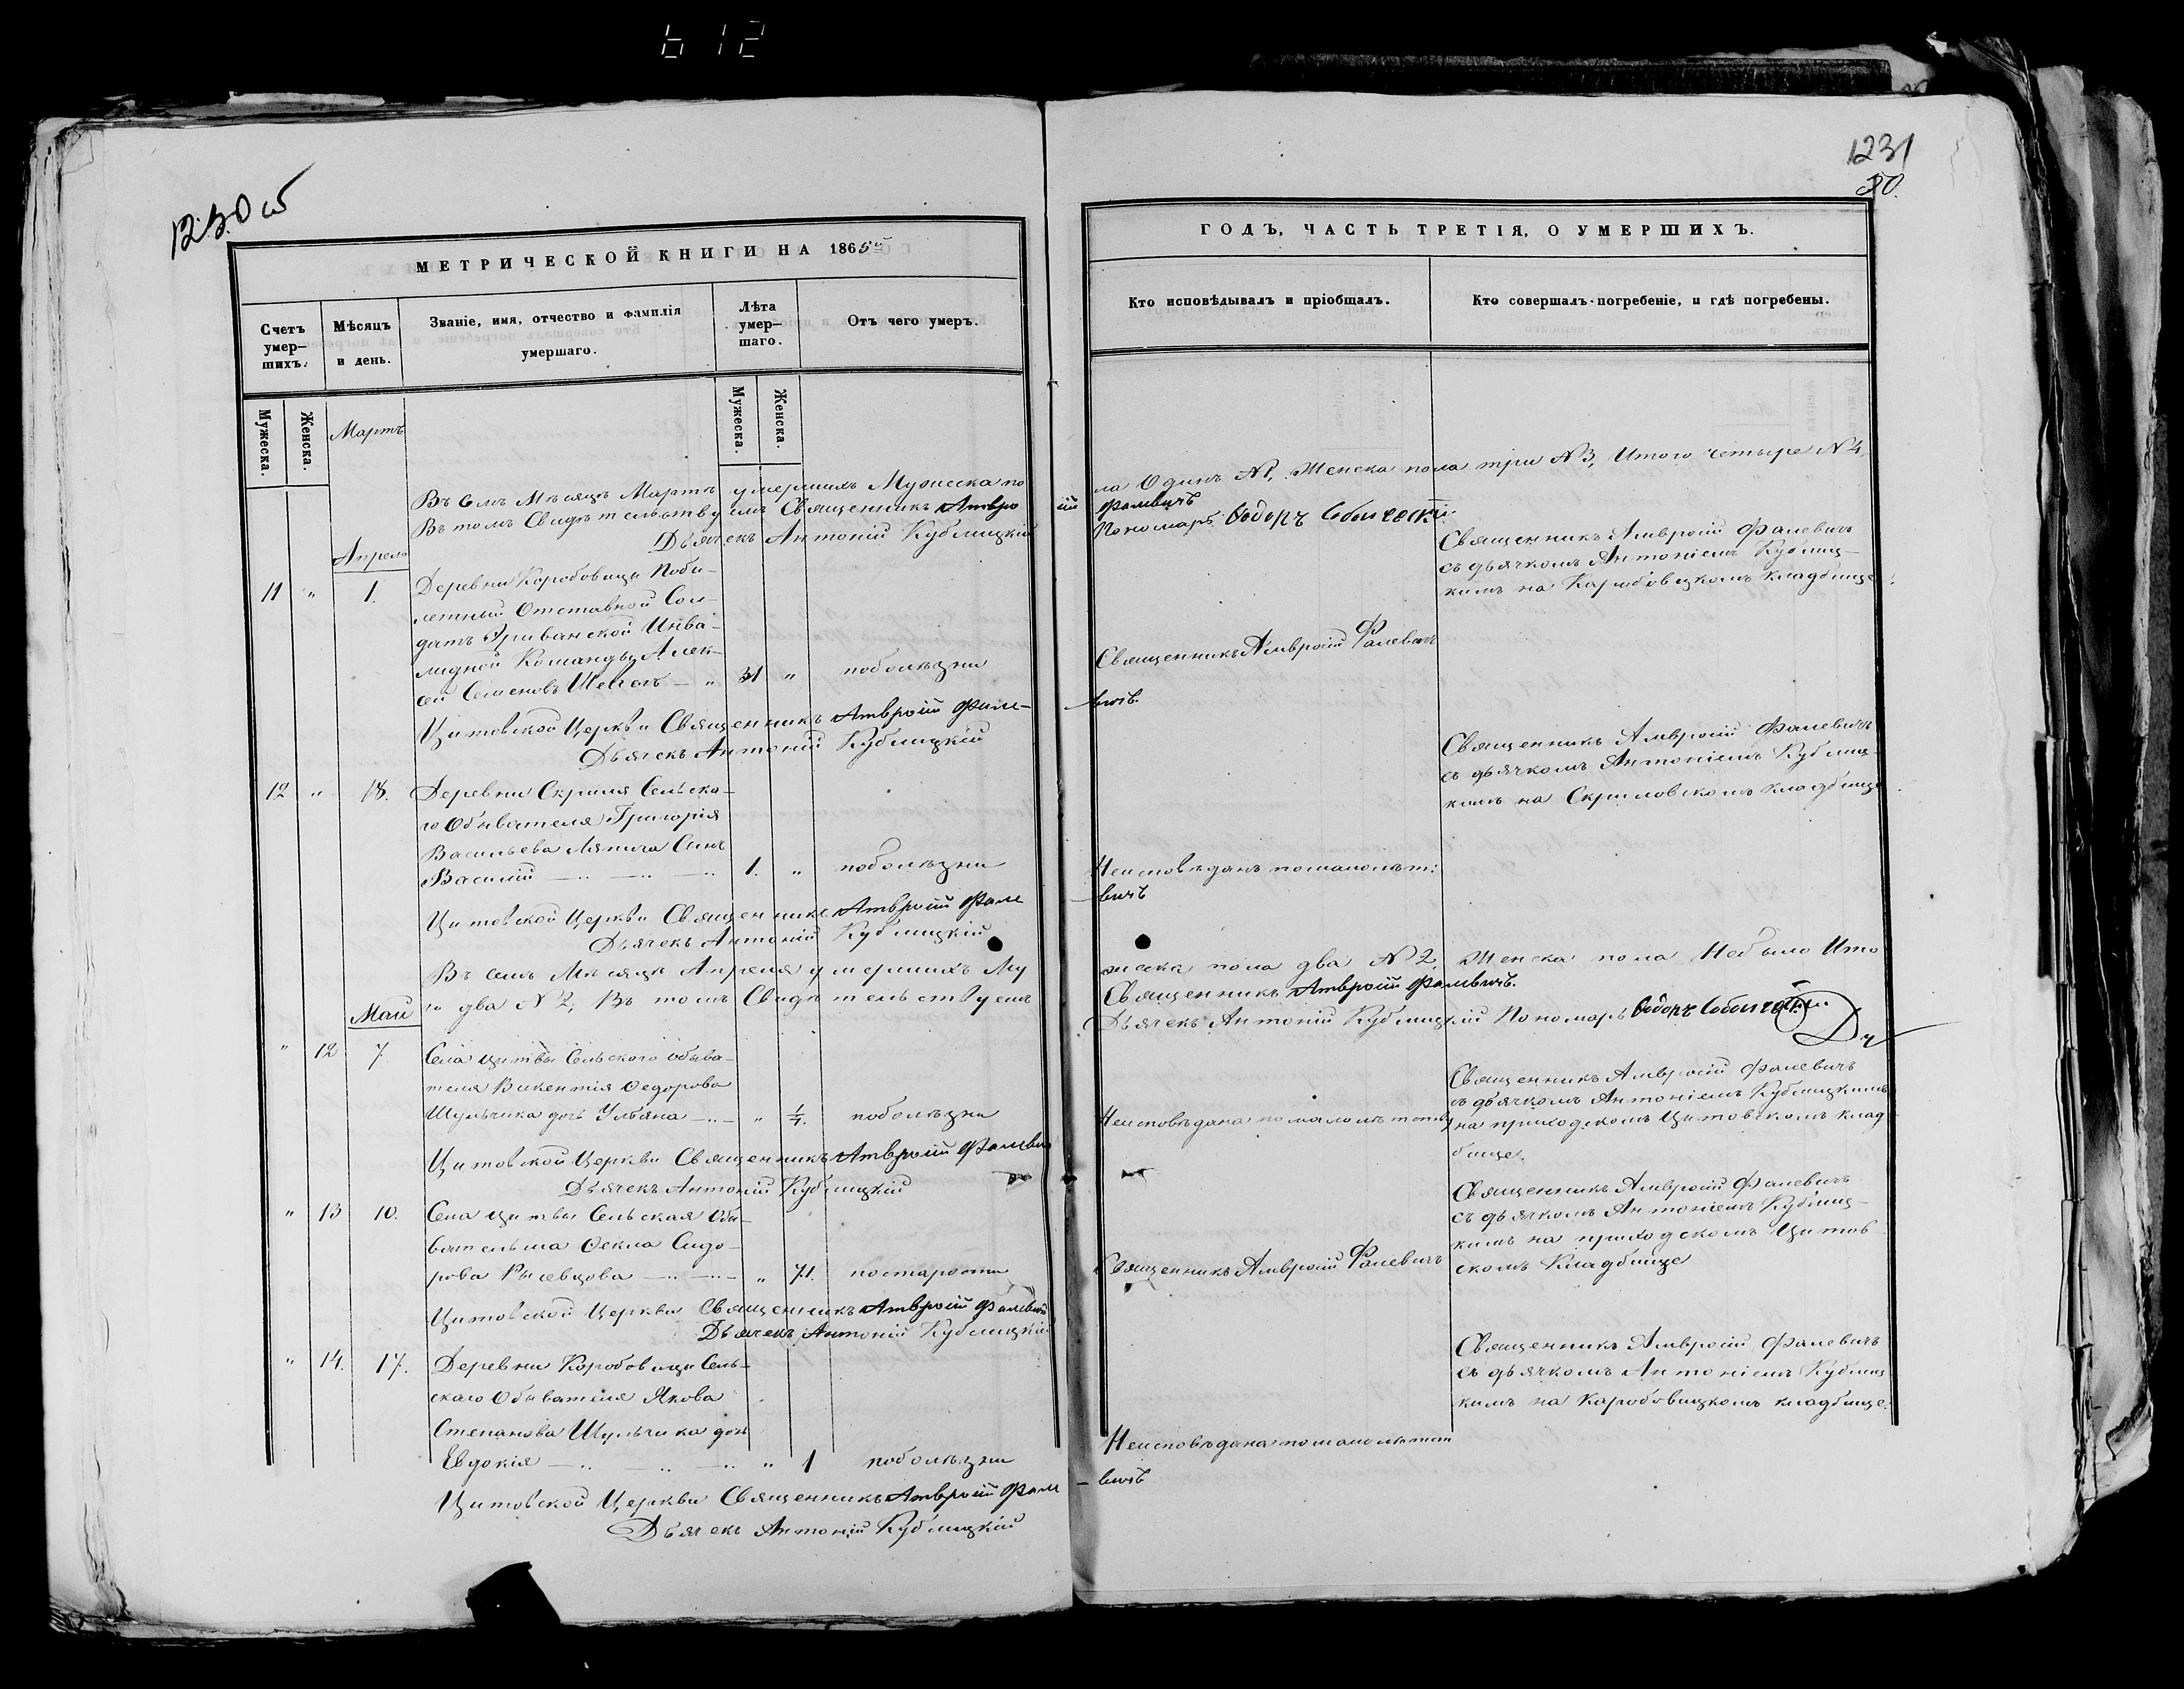 612
1230 об
МЕТРИЧЕСКОЙ КНИГИ НА 1865й
Счетъ умер-шихъ.
Мѣсяцъ и день.
Званіе, имя, отчество и фамилія умершаго.
Лѣта умер-шаго.
Отъ чего умеръ.
Мужеска.
Женска.
Мужеска.
Женска.
Мартъ
Въ семъ Мѣсяцѣ Мартѣ умершихъ Мужеска по
Въ томъ Свидѣтельствуемъ Священникъ Амвро
Дьячекъ Антоній Кублицкій
Апрель
11 " 1. Деревни Коробовцы Поби-
летный Отставной Сол-
датъ Эриванской Инва-
лидной Команды Алек-
сей Семеновъ — " 31 " по болѣзни
Цитовской Церкви Священникъ Амвросій Фале-
Дьячекъ Антоній Кублицкій
12 " 18. Деревни Скриля Сельска-
го Обывателя Григорія
Васильева Ляпича Сынъ
Василій — 1. " по болѣзни
Цитовской Церкви Священникъ Амвросій Фале
Дьячекъ Антоній Кублицкій
Въ семъ Мѣсяцѣ Апрелѣ умершихъ Му
го два N 2, Въ томъ Свидѣтельствуемъ
Май
" 12 7 Села Цитвы Сельского обыва-
теля Викентія Ѳедорова
Шульчика дочь Ульяна — " по болѣзни
Цитовской Церкви Священникъ Амвросій Фалеви
Дьячекъ Антоній Кублицкій
" 13 10. Села Цитвы Сельская Обы-
вательша Ѳекла Сидо-
рова Рысевцова — " 71. по старости
Цитовской Церкви Священникъ Амвросій Фалевичъ
Дьячекъ Антоній Кублицкій
" 14. 17. Деревни Коробовцы Сель-
скаго Обывателя Якова
Степанова Шульчика дочь
Евдокія — " 1 по болѣзни
Цитовской Церкви Священникъ Амвросій Фале
Дьячекъ Антоній Кублицкій
1231
50.
ГОДЪ, ЧАСТЬ ТРЕТІЯ, О УМЕРШИХЪ.
Кто исповѣдывалъ и пріобщалъ.
Кто совершалъ погребеніе, и гдѣ погребены.
ла Одинъ N 1, Женска пола три N 3, Итого четыре N 4,
сій Фалевичъ
Пономарь Ѳедоръ
Священникъ Амвросій Фалевичъ
съ дьячкомъ Антоніемъ Кублиц-
кимъ на Коробовцкомъ Кладбище.
Священникъ Амвросій Фалевичъ
вичъ.
Священникъ Амвросій Фалевичъ
съ дьячкомъ Антоніемъ Кублиц-
кимъ на Скриловскомъ кладбище.
Неисповѣданъ по малолѣт:
вичъ
жеска пола два N 2, Женска пола Небыло Ито
Священникъ Амвросій Фалевичъ.
Дьячекъ Антоній Кублицкій Пономарь Ѳедоръ
Священникъ Амвросій Фалевичъ
съ дьячкомъ Антоніемъ Кублицкимъ
Неисповѣдана по малолѣтству на приходскомъ Цитовскомъ клад-
бище.
Священникъ Амвросій Фалевичъ
съ дьячкомъ Антоніемъ Кублиц-
кимъ на приходскомъ Цитов
Священникъ Амвросій Фалевичъ скомъ Кладбище
Священникъ Амвросій Фалевичъ
съ дьячкомъ Антоніемъ Кублиц
кимъ на Коробовицкомъ кладбище.
Неисповѣдана по малолѣтст
вичъ